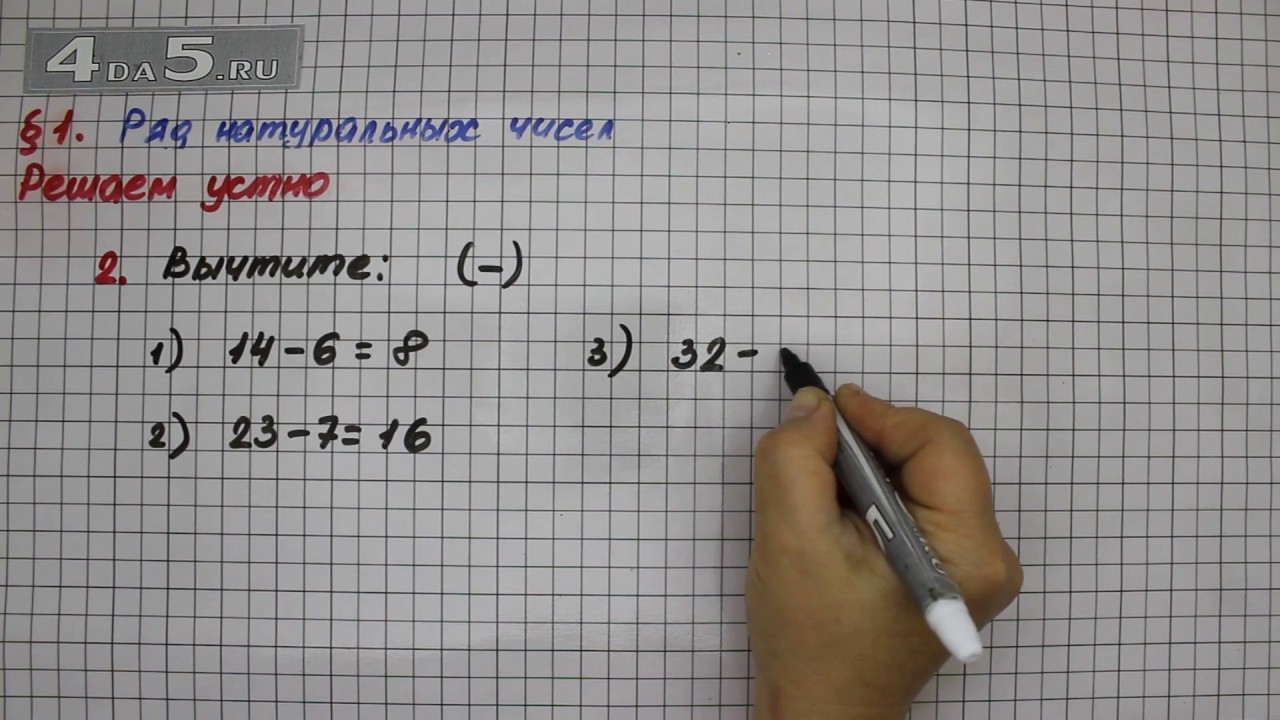 4DA5.RU
§1. Ряд натуральных чисел
Решаем устно
2. Вычтите: (-)
1) 14-6=8
3) 32-
2) 23-7=16